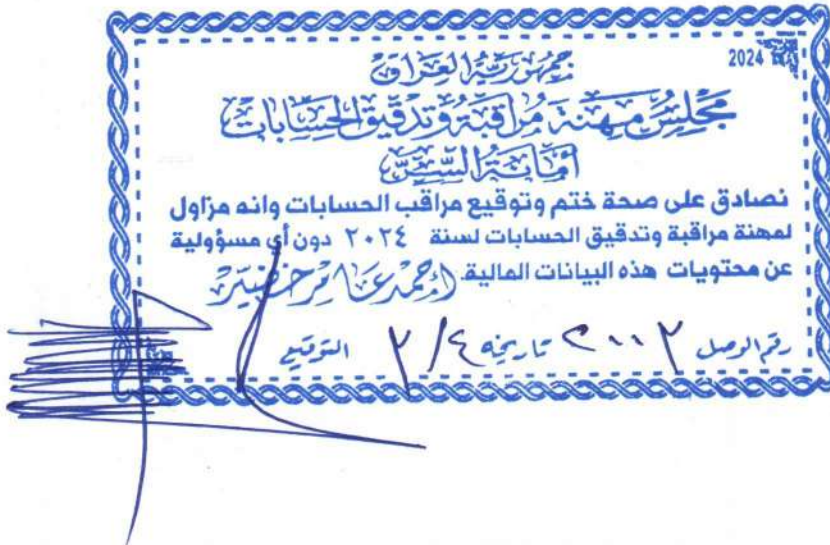 2024
جمهورية العراق
مجلس مهنة مراقبة وتدقيق الحسابات
أمانة السر
نصادق على صحة ختم وتوقيع مراقب الحسابات وانه مزاول
لمهنة مراقبة وتدقيق الحسابات لسنة ٢٠٢٤ دون أي مسؤولية
عن محتويات هذه البيانات المالية. احمد عامر خضير
رقم الوصل ٢٠٠٢ تاريخه ٢/٤ التوقيع